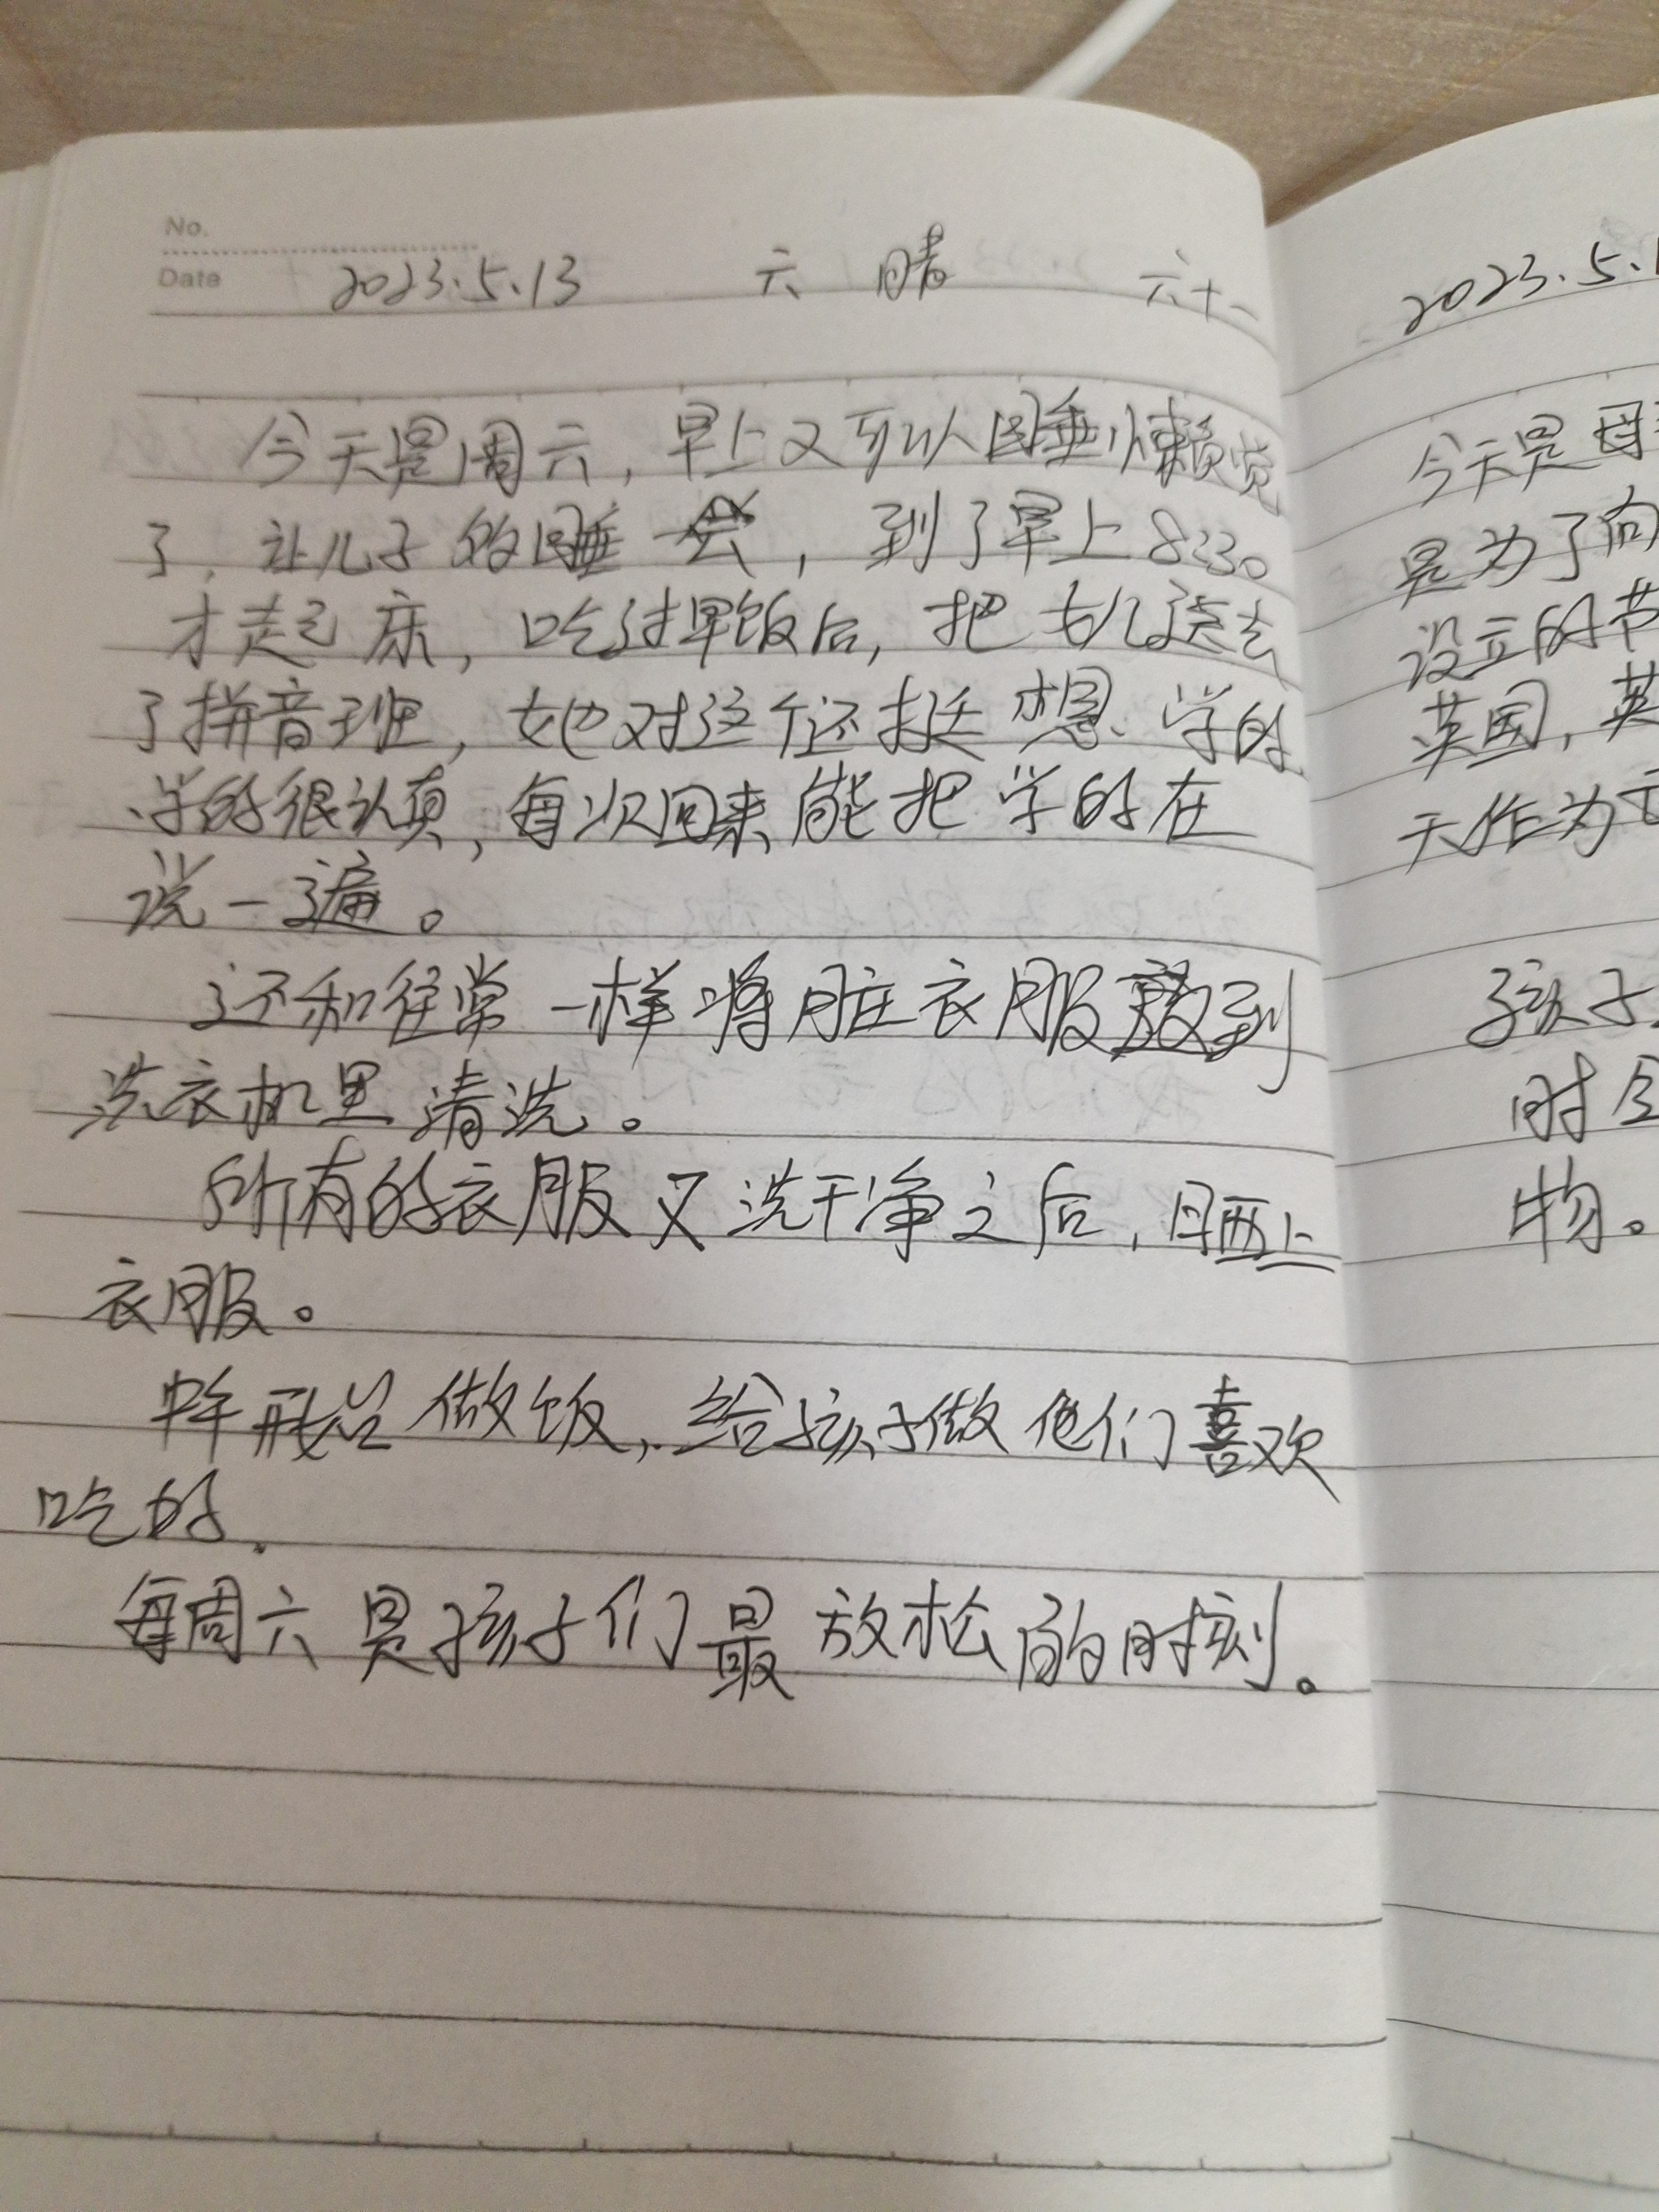 No.
Date 2023.5.13 六 晴 六十一
今天是周六，早上又可以睡懒觉
了，让儿子多睡会，到了早上8:30
才起床，吃过早饭后，把女儿送去
了拼音班，她对这个还挺想学的
学的很认真，每次回来能把学的在
说一遍。
还和往常一样将脏衣服放到
洗衣机里清洗。
所有的衣服又洗干净之后，晒上
衣服。
做饭，给孩子做他们喜欢
吃的.
每周六是孩子们最放松的时刻。
2023.5.1
今天是母
是为了向
设立的节
英国，英
天作为
孩子
时
物。